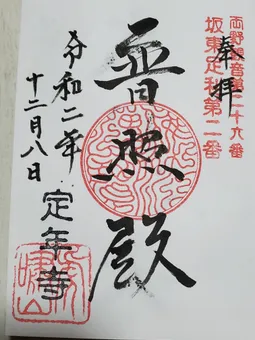 両野観音第二十九番
坂東足利第二番
奉拝
普照殿
令和二年
十二月八日
定年寺